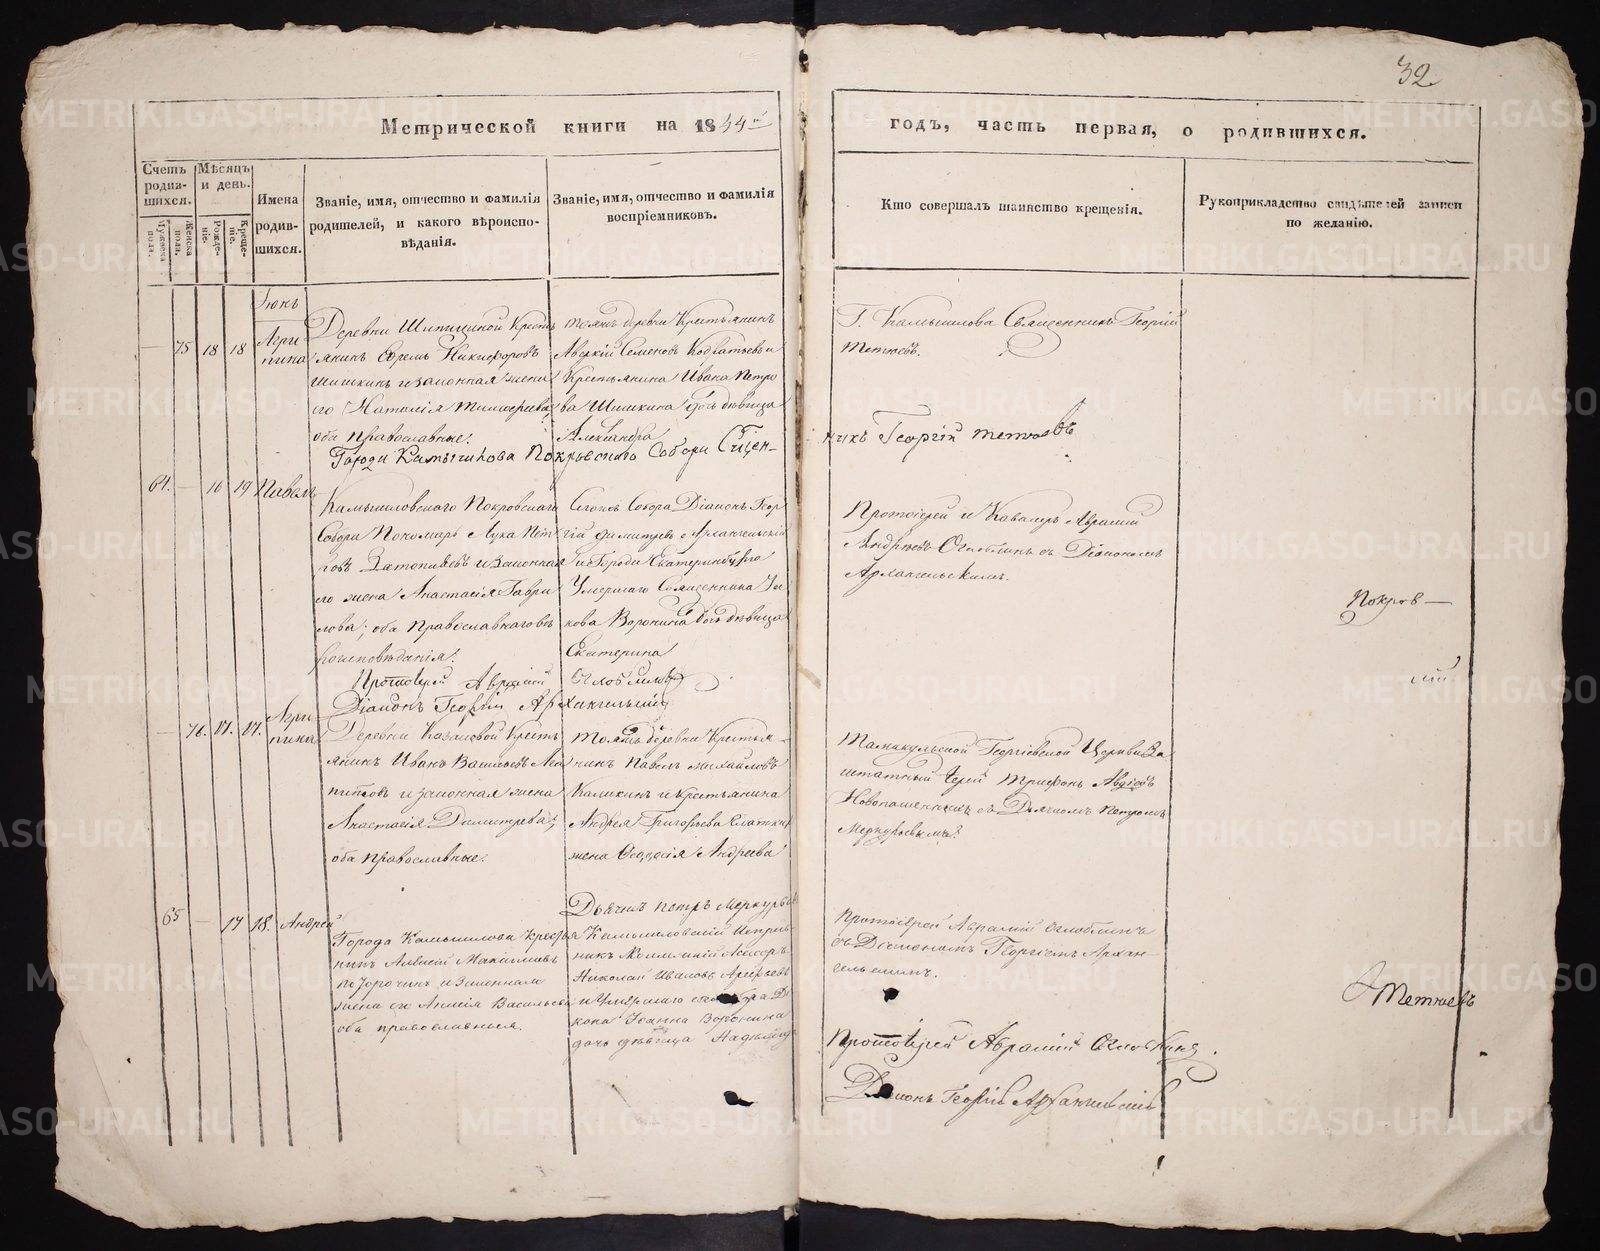 32
Метрической книги на 1834й годъ, часть первая, о родившихся.
Счетъ родившихся.
Мѣсяцъ и день.
Имена родившихся.
Званіе, имя, отчество и фамилія родителей, и какого вѣроисповѣданія.
Званіе, имя, отчество и фамилія воспріемниковъ.
Кто совершалъ таинство крещенія.
Рукоприкладство свидѣтелей записи по желанію.
Мужеска пола.
Женска пола.
Рожденіе.
Крещеніе.
— 75 18 18 Агрипина
Деревни Шипициной Крестьянинъ Ефремъ Никифоровъ
Шишкинъ и законная жена
его Наталія Тимофеева,
оба православные.
тояжъ деревни Крестьянинъ
Аверкій Семеновъ
Крестьянина Ивана Петрова Шишкина дочь дѣвица
Александра
Г. Камышлова Священникъ Георгій
Тетюевъ.
Города Камышлова Покровскаго Собора Священникъ Георгій Тетюевъ
64. — 16 19 Павелъ
Камышловскаго Покровскаго
Собора Пономарь Лука Петровъ и законная
его жена Анастасія Гаврилова; оба Православнаго вѣроисповѣданія.
Собора Діаконъ Георгій Архангельскій
и Города Екатеринбурга
Умершаго Священника
Воронина дочь дѣвица
Екатерина
Протоіерей и Кавалеръ Аврамій
Андреевъ Оглоблинъ съ Діакономъ
Архангельскимъ.
Покров—
Протоіерей Аврамій Оглоблинъ
Діаконъ Георгій Архангельскій
— 76. 17. 17. Агрипина
Деревни Казаковой Крестьянинъ Иванъ Васильевъ
и законная жена
Анастасія Димитрева;
оба православные.
Тояжъ деревни Крестьянинъ Павелъ Михайловъ
Каликинъ и крестьянина
Андрея Григорьева
жена Феодосія Андреева
Тамакульской Георгіевской Церкви Заштатный Іерей Трифонъ Авдіевъ
съ Дьячкомъ Петромъ
Меркурьевымъ.
Дьячекъ Петръ Меркурьевъ
65 — 17 18. Андрей
Города Камышлова крестьянинъ Алексій Максимовъ
и законная
жена его Анисія Васильева
оба православныя.
Камышловскій Исправникъ Коллежскій Асессоръ
Николай Ивановъ
и Умершаго
Іоанна Воронина
дочь дѣвица Надежда
Протоіерей Аврамій Оглоблинъ
съ Діакономъ Георгіемъ Архангельскимъ.
Тетюевъ
Протоіерей Аврамій Оглоблинъ.
Діаконъ Георгій Архангельскій